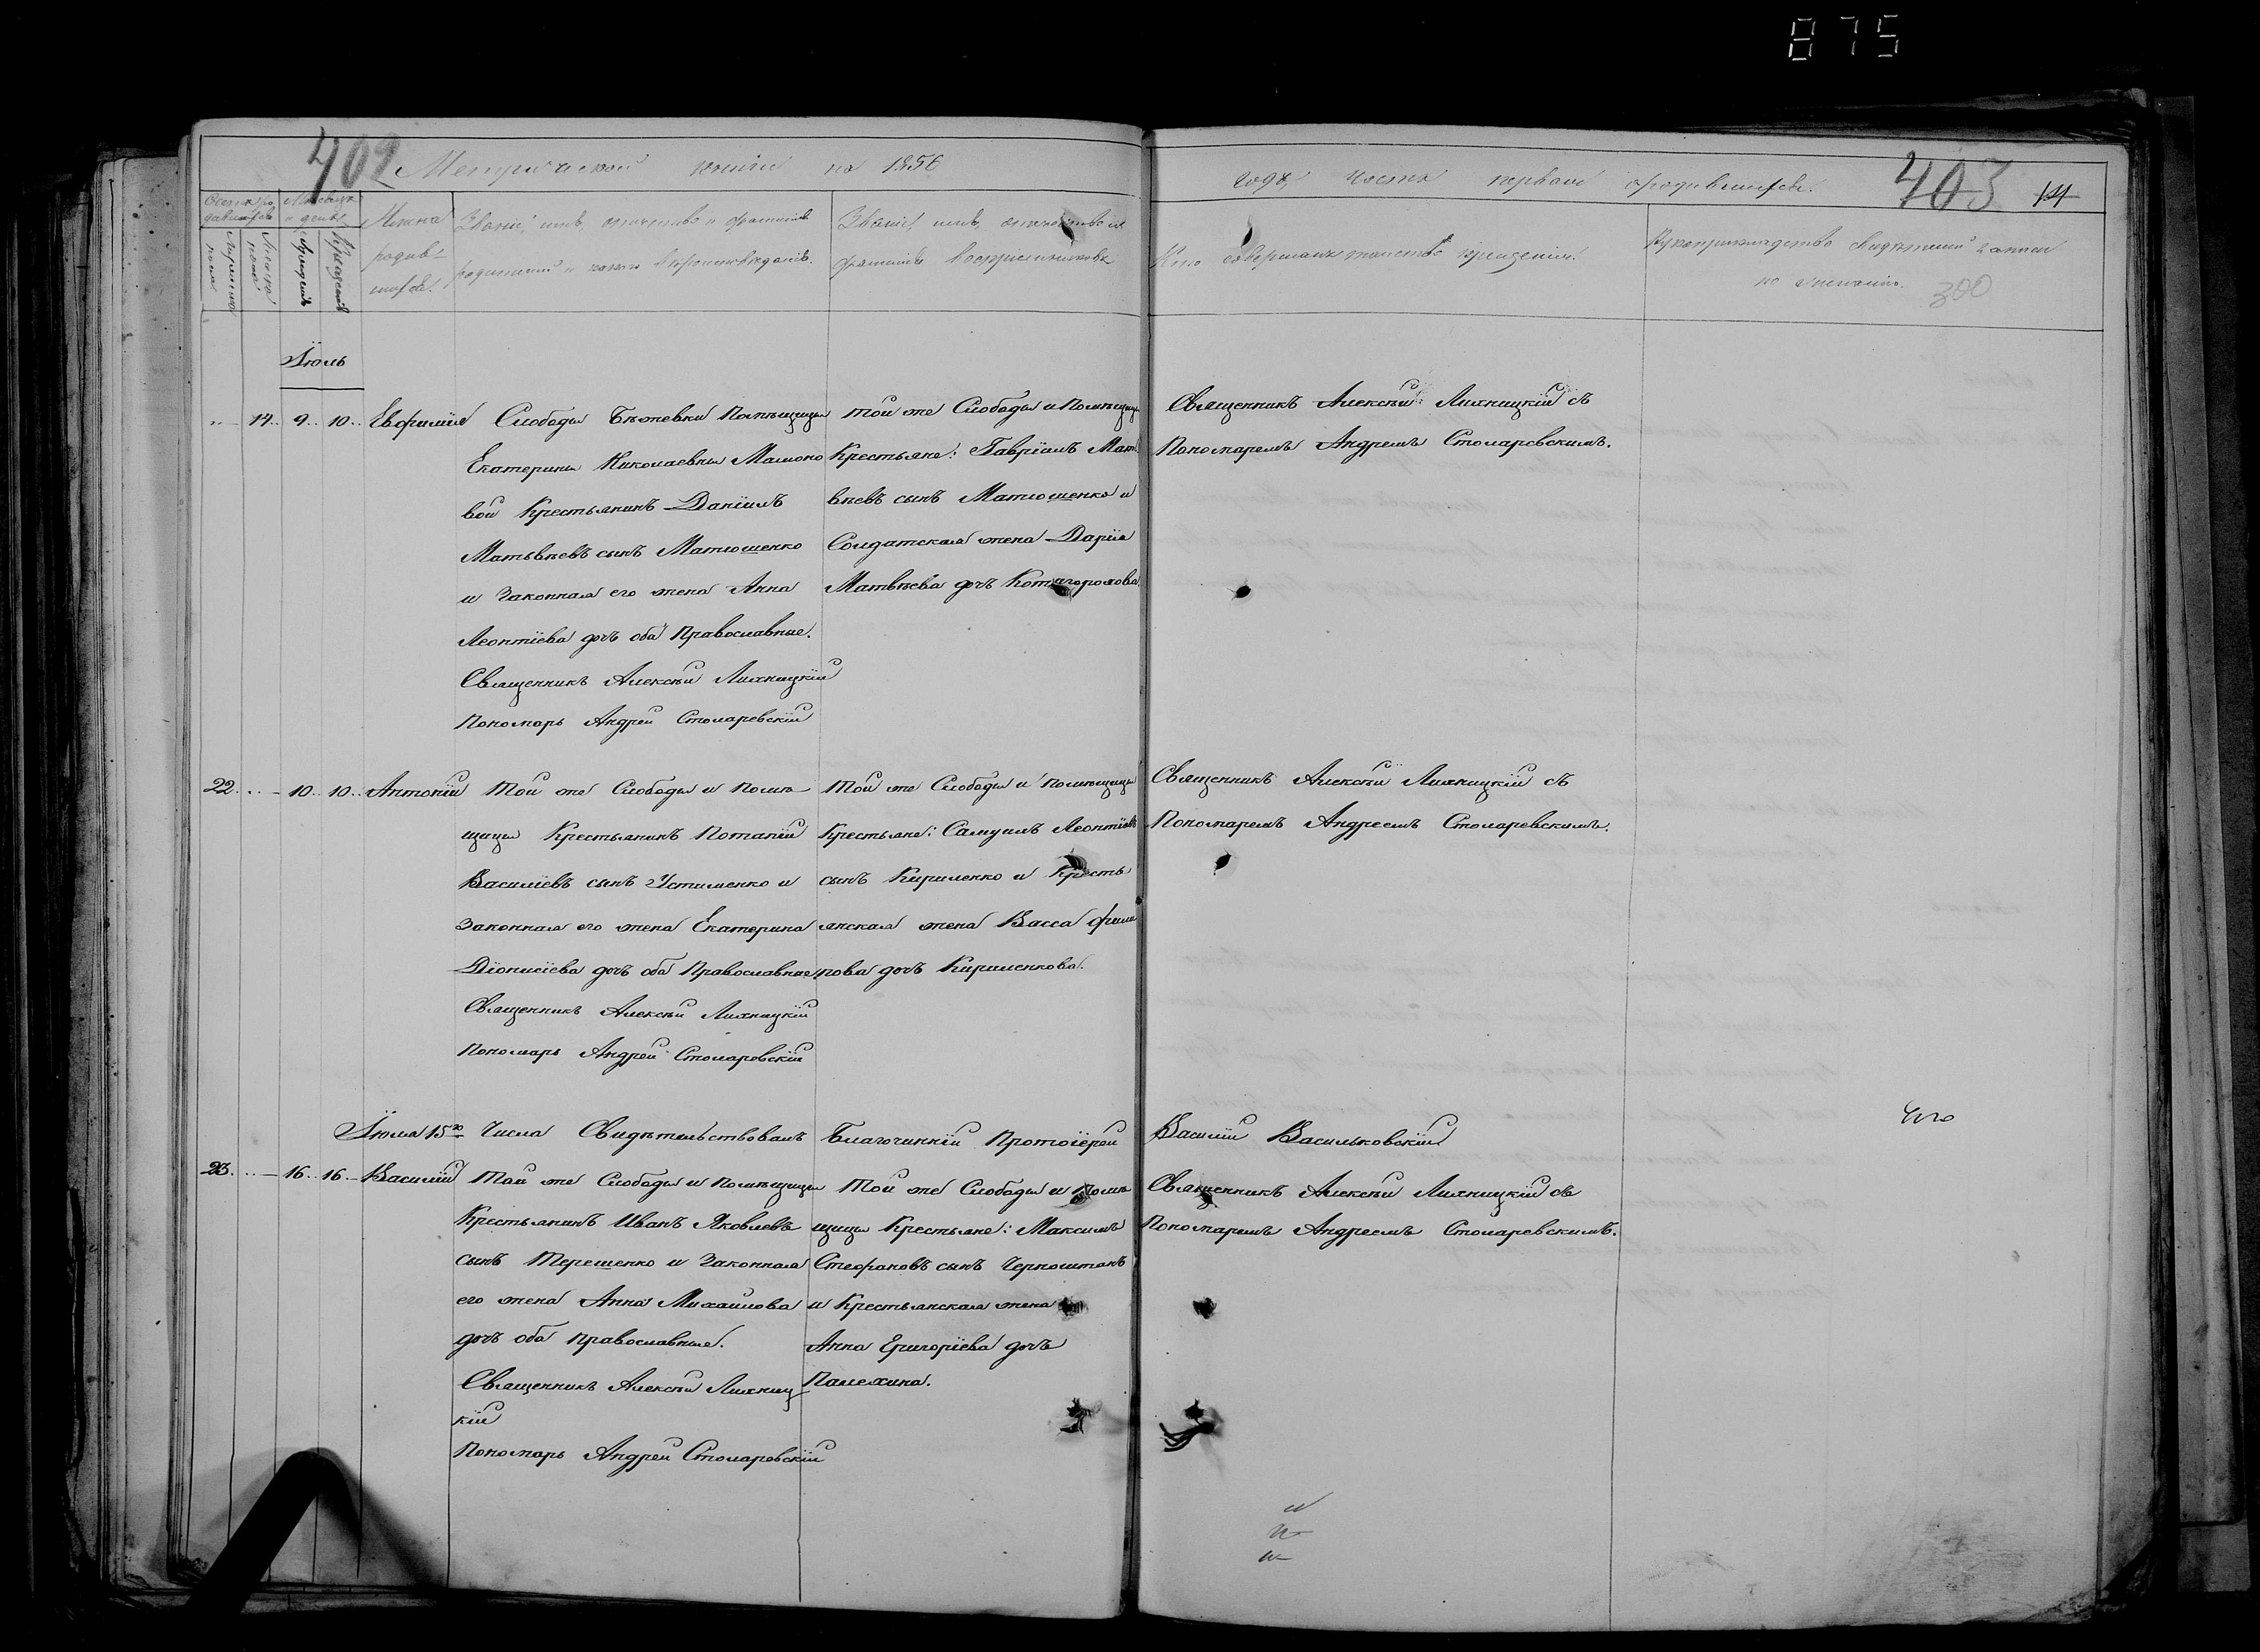 875
402 Метрической книги на 1856
годъ, часть первая о родившихся.
403
Счетъ родившихся
Мѣсяцъ и день
Мужеска пола
Женска пола
рожденія
крещенія
Имена родившихся.
Званіе, имя, отчество и фамилія
родителей и какого вѣроисповѣданія.
Званіе, имя, отчество и
фамилія воспріемниковъ
Кто совершалъ таинство крещенія.
Рукоприкладство свидѣтелей записи
по желанію.
300
Іюль
14. 9. 10. Евфимія
Слободы Бѣжевки Помѣщицы
Екатерины Николаевны Машоно
вой Крестьянинъ Даніилъ
Матвѣевъ сынъ Матюшенко
и Законная его жена Анна
Леонтіева дочъ оба Православные.
Священникъ Алексѣй Лихницкій
Пономарь Андрей Столаревскій
Той же Слободы и Помѣщицы
Крестьяне: Гавріилъ Мат
вѣевъ сынъ Матюшенко и
Солдатская жена Дарія
Матвѣева дочъ
Священникъ Алексѣй Лихницкій съ
Пономаремъ Андреемъ Столаревскимъ.
22. 10. 10. Антоній
Той же Слободы и Помѣ
щицы Крестьянинъ Потапій
Василіевъ сынъ Устименко и
Законная его жена Екатерина
Діонисіева дочъ оба Православные,
Священникъ Алексѣй Лихницкій
Пономарь Андрей Столаревскій
Той же Слободы и Помѣщицы
Крестьяне: Самуилъ Леонтіевъ
сынъ Кириленко и Кресть
янская жена Васса Фили
пова дочъ Кириленкова.
Священникъ Алексѣй Лихницкій съ
Пономаремъ Андреемъ Столаревскимъ.
Іюля 15го Числа Свидѣтельствовалъ Благочинній Протоіерей Василій Васильковскій
23. 16. 16. Василій
Той же Слободы и Помѣщицы
Крестьянинъ Иванъ Яковлевъ
сынъ Терещенко и Законная
его жена Анна Михайлова
дочъ оба православные.
Священникъ Алексѣй Лихниц
кій
Пономарь Андрей Столаревскій
Той же Слободы и Помѣ
щицы Крестьяне: Максимъ
Стефановъ сынъ Черноштанъ
и Крестьянская жена
Анна Григоріева дочъ
Палехина.
Священникъ Алексѣй Лихницкій съ
Пономаремъ Андреемъ Столаревскимъ.